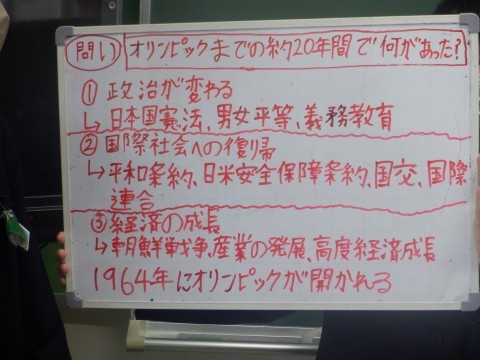 問い オリンピックまでの約20年間で何があった?
① 政治が変わる
↳日本国憲法、男女平等、義務教育
② 国際社会への復帰
↳平和条約、日米安全保障条約、国交、国際
連合
③経済の成長
↳朝鮮戦争、産業の発展、高度経済成長
1964年にオリンピックが開かれる